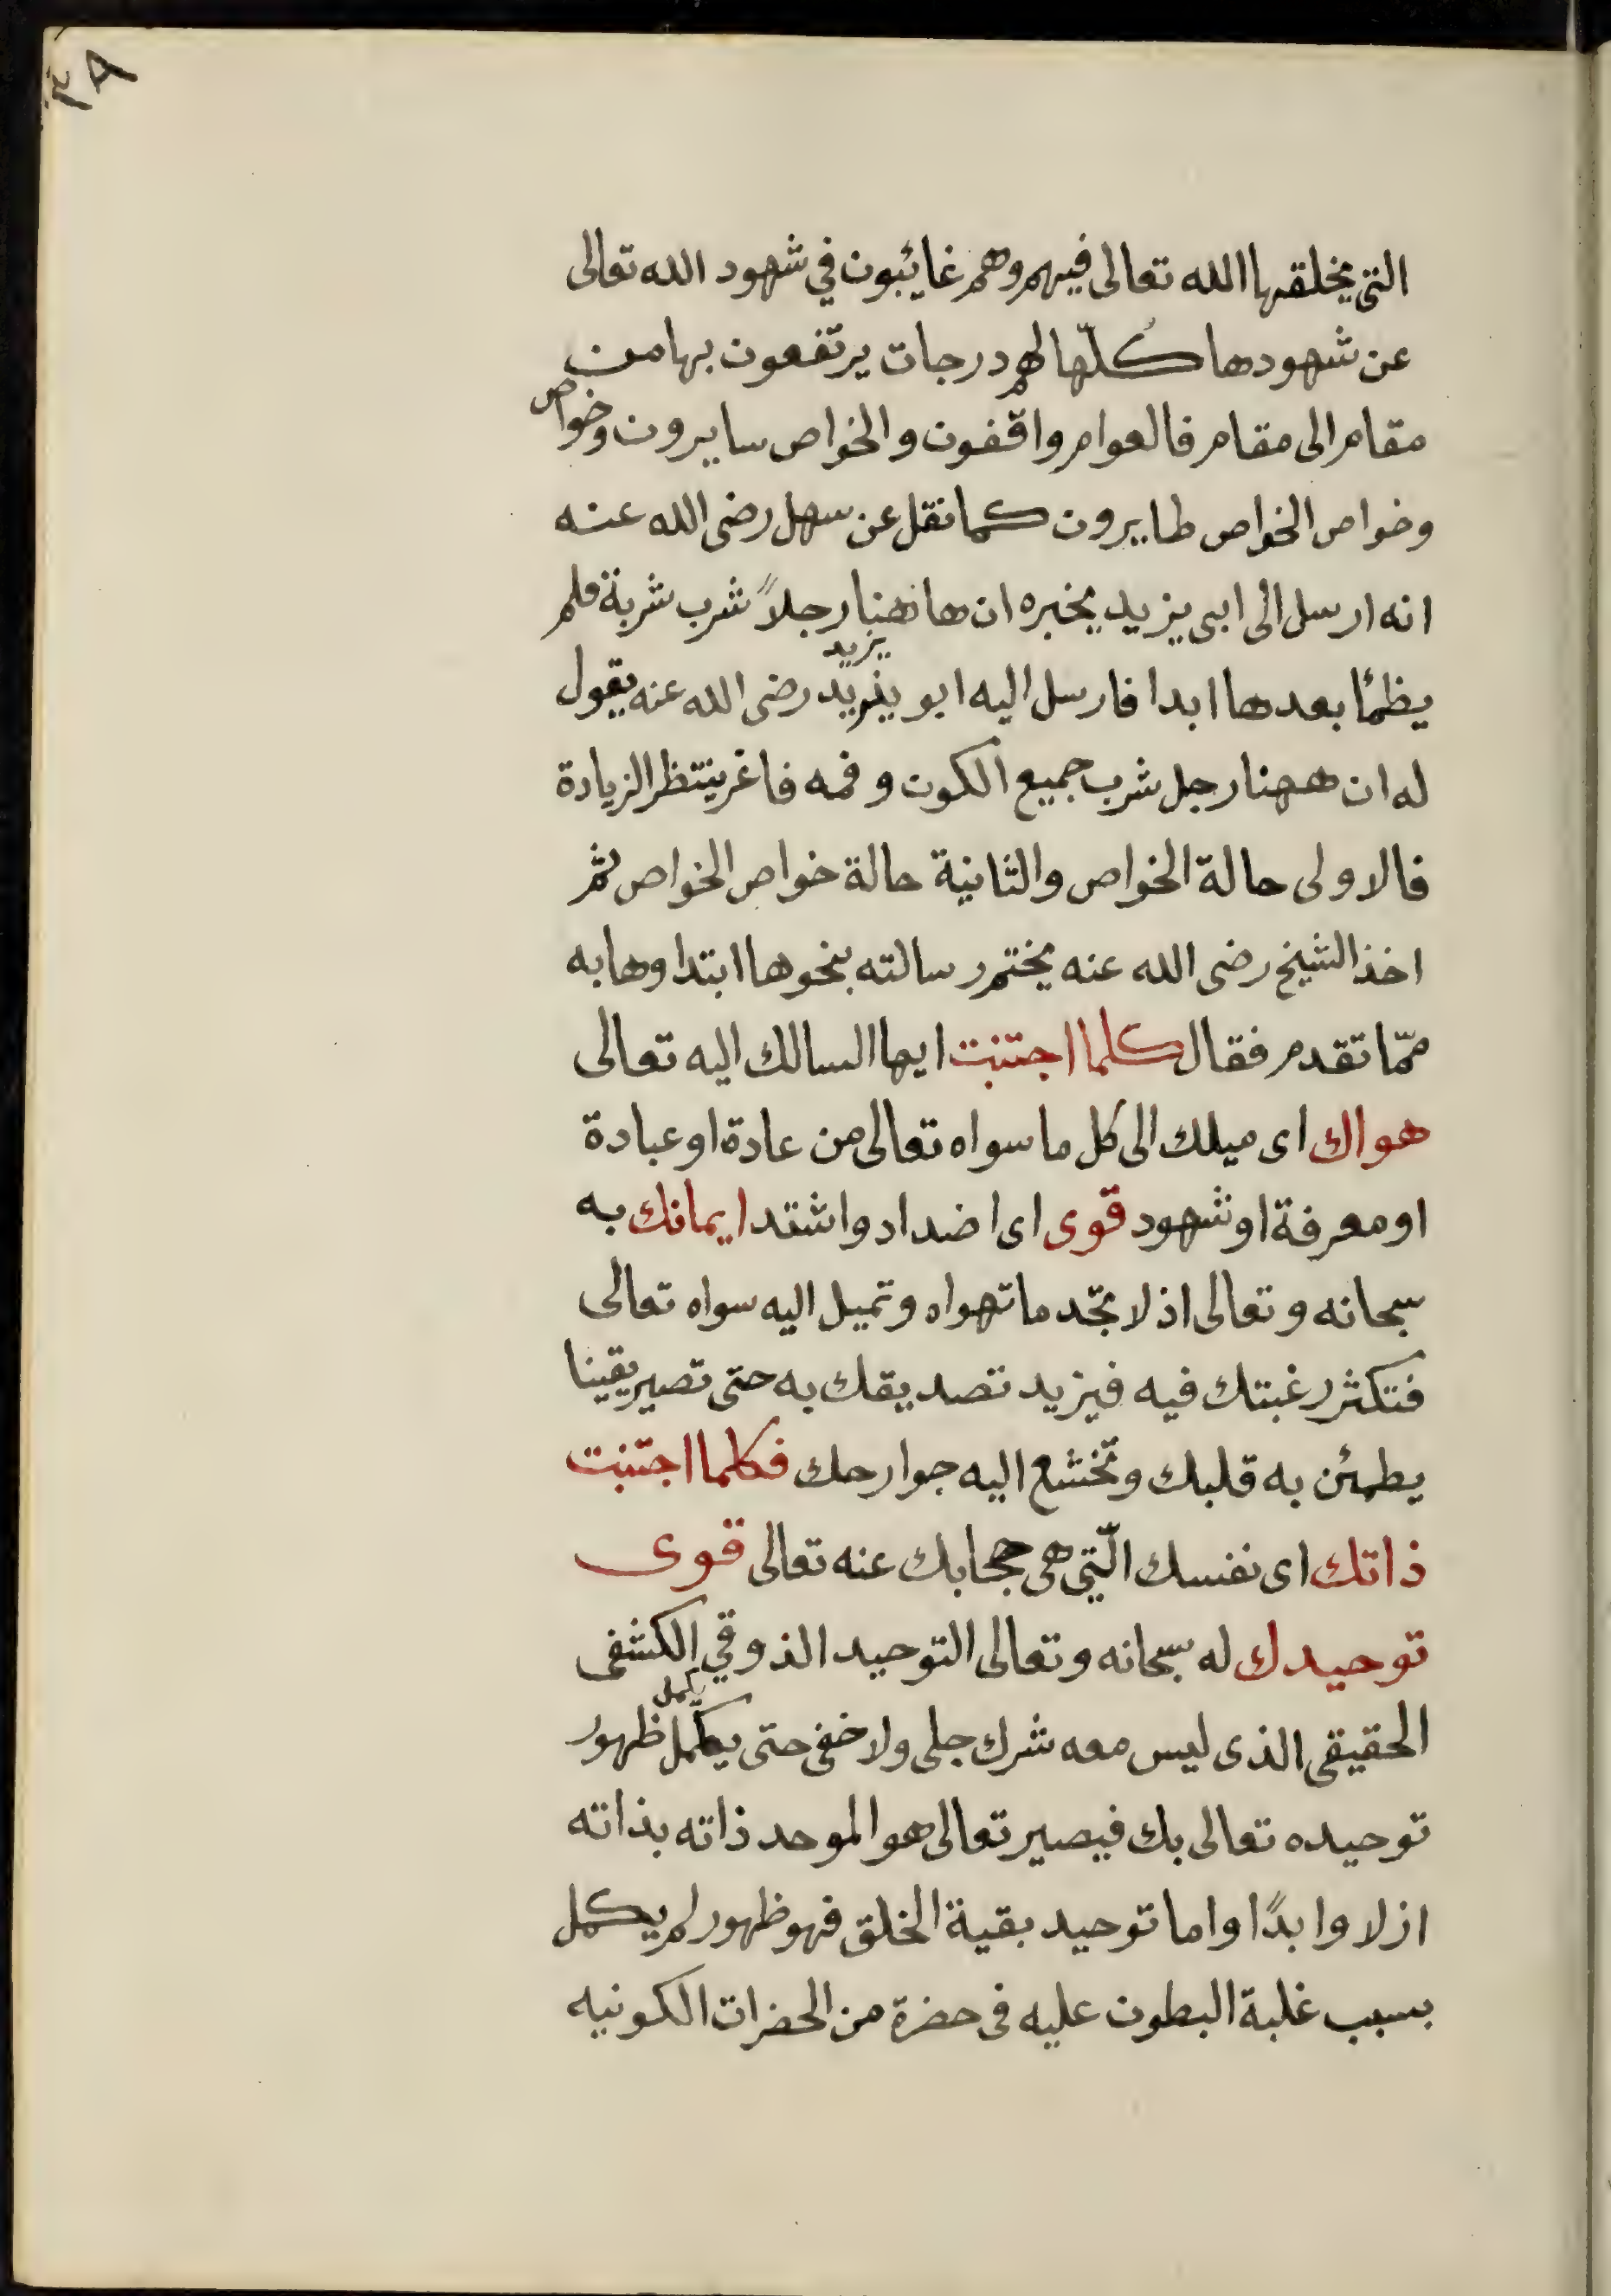 ٣٨
التى يخلقها الله تعالى فيهم وهم غائبون في شهود الله تعالى
عن شهودها كلّها لهم درجات يرتفعون بها من
مقام الى مقام فالعوام واقفون والخواص سايرون وخواص
وخواص الخواص طايرون كما نقل عن سهل رضى الله عنه
انه ارسل الى ابى يزيد يخبره ان هاهنا رجلاً شرب شربة فلم
يزيد
يظمأ بعدها ابدا فارسل اليه ابو يزيد رضى الله عنه يقول
له ان ههنا رجل شرب جميع الكون وفمه فاغر ينتظر الزيادة
فالاولى حالة الخواص والثانية حالة خواص الخواص ثم
اخذ الشيخ رضى الله عنه يختم رسالته بنحوها ابتداوها به
ممّا تقدم فقال كلما اجتنبت ايها السالك اليه تعالى
هواك اى ميلك الى كل ما سواه تعالى من عادة او عبادة
او معرفة او شهود قوى اى اضداد واشتد ايمانك به
سبحانه وتعالى اذ لا تجد ما تهواه وتميل اليه سواه تعالى
فتكثر رغبتك فيه فيزيد تصديقك به حتى تصير يقينا
يطمئن به قلبك وتخشع اليه جوارحك فكلما اجتنبت
ذاتك اى نفسك الّتي هى حجابك عنه تعالى قوى
توحيدك له سبحانه وتعالى التوحيد الذوقي الكشفى
يكمل
الحقيقى الذى ليس معه شرك جلى ولا خفى حتى يكمل ظهور
توحيده تعالى بك فيصير تعالى هو الموحد ذاته بذاته
ازلا وابدًا واما توحيد بقية الخلق فهو ظهور لم يكمل
بسبب غلبة البطون عليه فى حضرة من الحضرات الكونيه